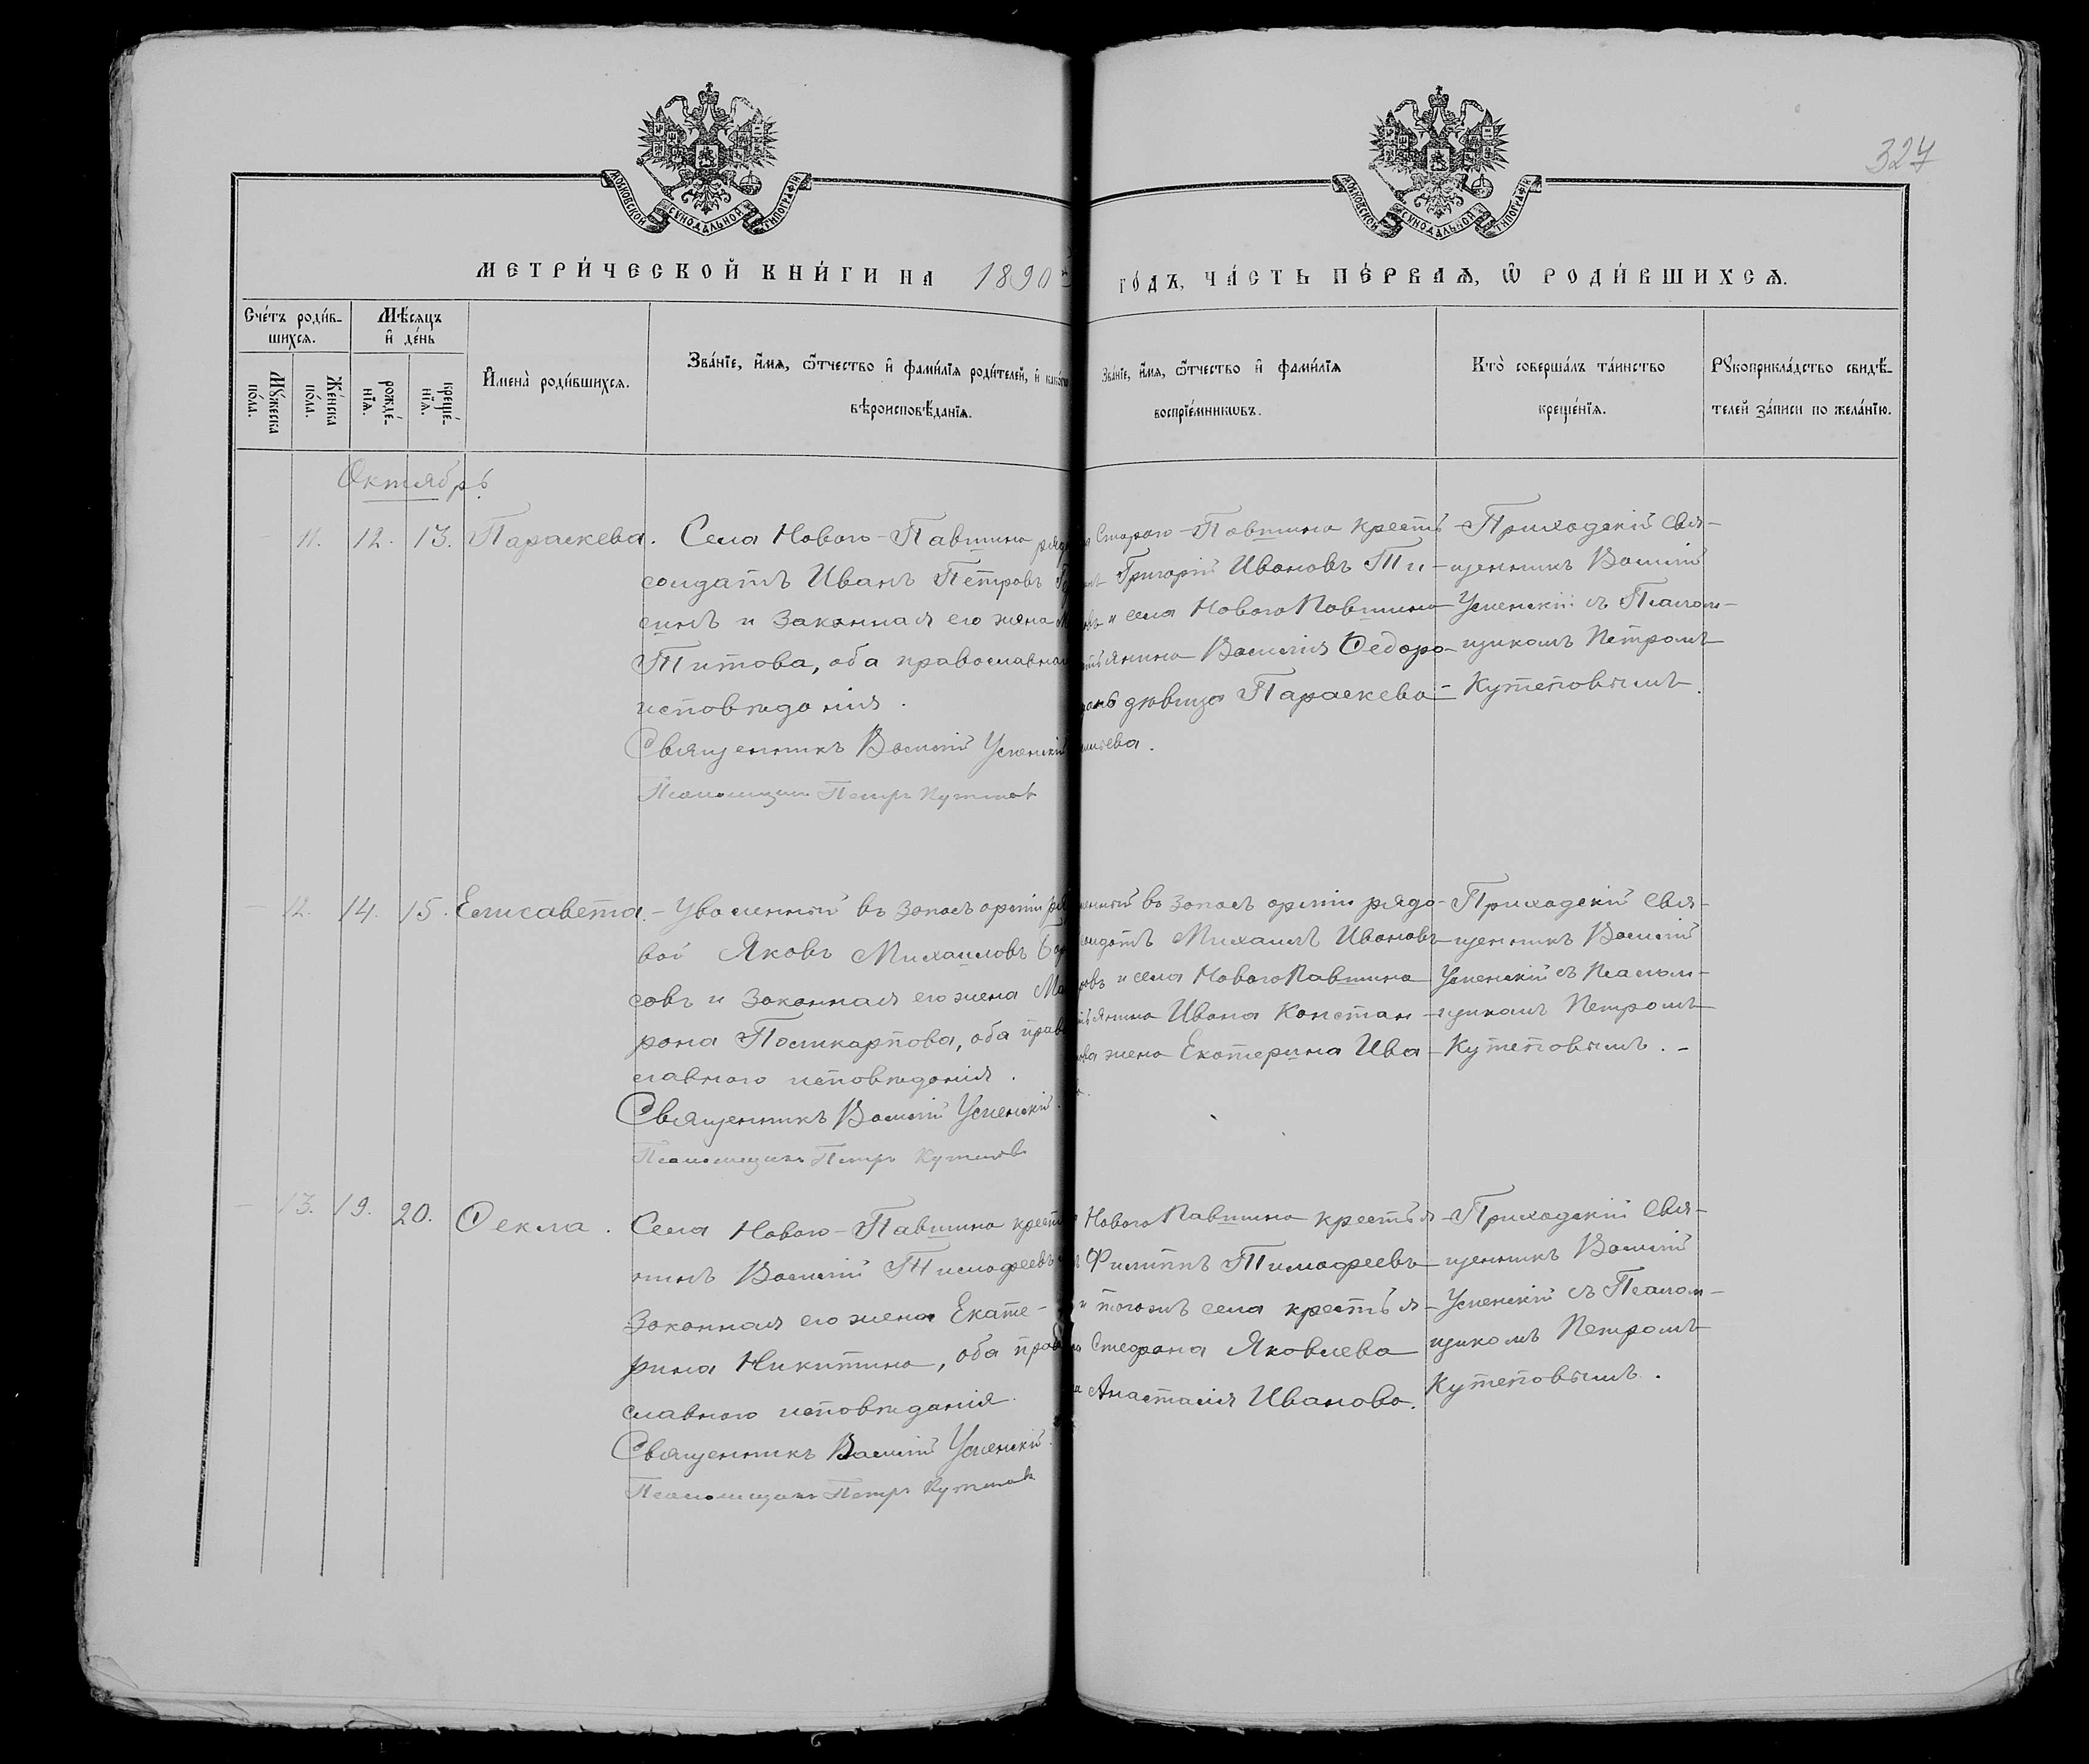 МОСКОВСКОЙ СѴНОДАЛЬНОЙ ТИПОГРАФІИ
МОСКОВСКОЙ СѴНОДАЛЬНОЙ ТИПОГРАФІИ
327
МЕТРИ́ЧЕСКОЙ КНИ́ГИ НА 1890
ГО́ДЪ, ЧА́СТЬ ПЕ́РВАЯ, Ѽ РОДИ́ВШИХСЯ.
Сче́тъ роди́в-
шихся.
Му́жеска
по́ла.
Же́нска
по́ла.
Мѣ́сяцъ
и де́нь
рожде́-
нїя.
креще́-
нїя.
Имена̀ роди́вшихся.
Зва́нїе, и́мя, ѻ́тчество и фами́лїя роди́телей, и
вѣроисповѣ́данїя.
Зва́нїе, и́мя, ѻ́тчество и фами́лїя
воспрїе́мниковъ.
Кто̀ соверша́лъ та́инство
креще́нїя.
Рꙋкоприкла́дство свидѣ́-
телей за́писи по жела́нїю.
Октябрь
11. 12. 13. Параскева. Села Новаго-Павшина
солдатъ Иванъ Петровъ
синъ и законная его жена
Титова, оба православнаго
исповѣданія.
Священникъ Василій Успенскій
Псаломщикъ Петръ Кутеповъ
Стараго-Павшина крестъ
Григорій Ивановъ Ти-
и села Новаго Павшина
Василія Ѳедоро-
дѣвица Параскева
Приходскій Свя-
щенникъ Василій
Успенскій съ Псалом-
щикомъ Петромъ
Кутеповымъ.
12. 14. 15. Елисавета. Уволенный въ запасъ арміи
вой Яковъ Михаиловъ
совъ и законная его жена
рона Поликарпова, оба
славнаго исповѣданія.
Священникъ Василій Успенскій.
Псаломщикъ Петръ Кутеповъ
въ запасъ арміи рядо-
Михаилъ Ивановъ
и села Новаго Павшина
Ивана Констан-
жена Екатерина Ива-
Приходскій Свя-
щенникъ Василій
Успенскій съ Псалом-
щикомъ Петромъ
Кутеповымъ.
13. 19. 20. Ѳекла. Села Новаго-Павшина
нинъ Василій Тимофеевъ
законная его жена Екате-
рина Никитина, оба
славнаго исповѣданія.
Священникъ Василій Успенскій.
Псаломщикъ Петръ Кутеповъ
Новаго Павшина крестья-
Филиппъ Тимофеевъ
и тогожъ села крестья-
Стефана Яковлева
Анастасія Иванова.
Приходскій Свя-
щенникъ Василій
Успенскій съ Псалом-
щикомъ Петромъ
Кутеповымъ.